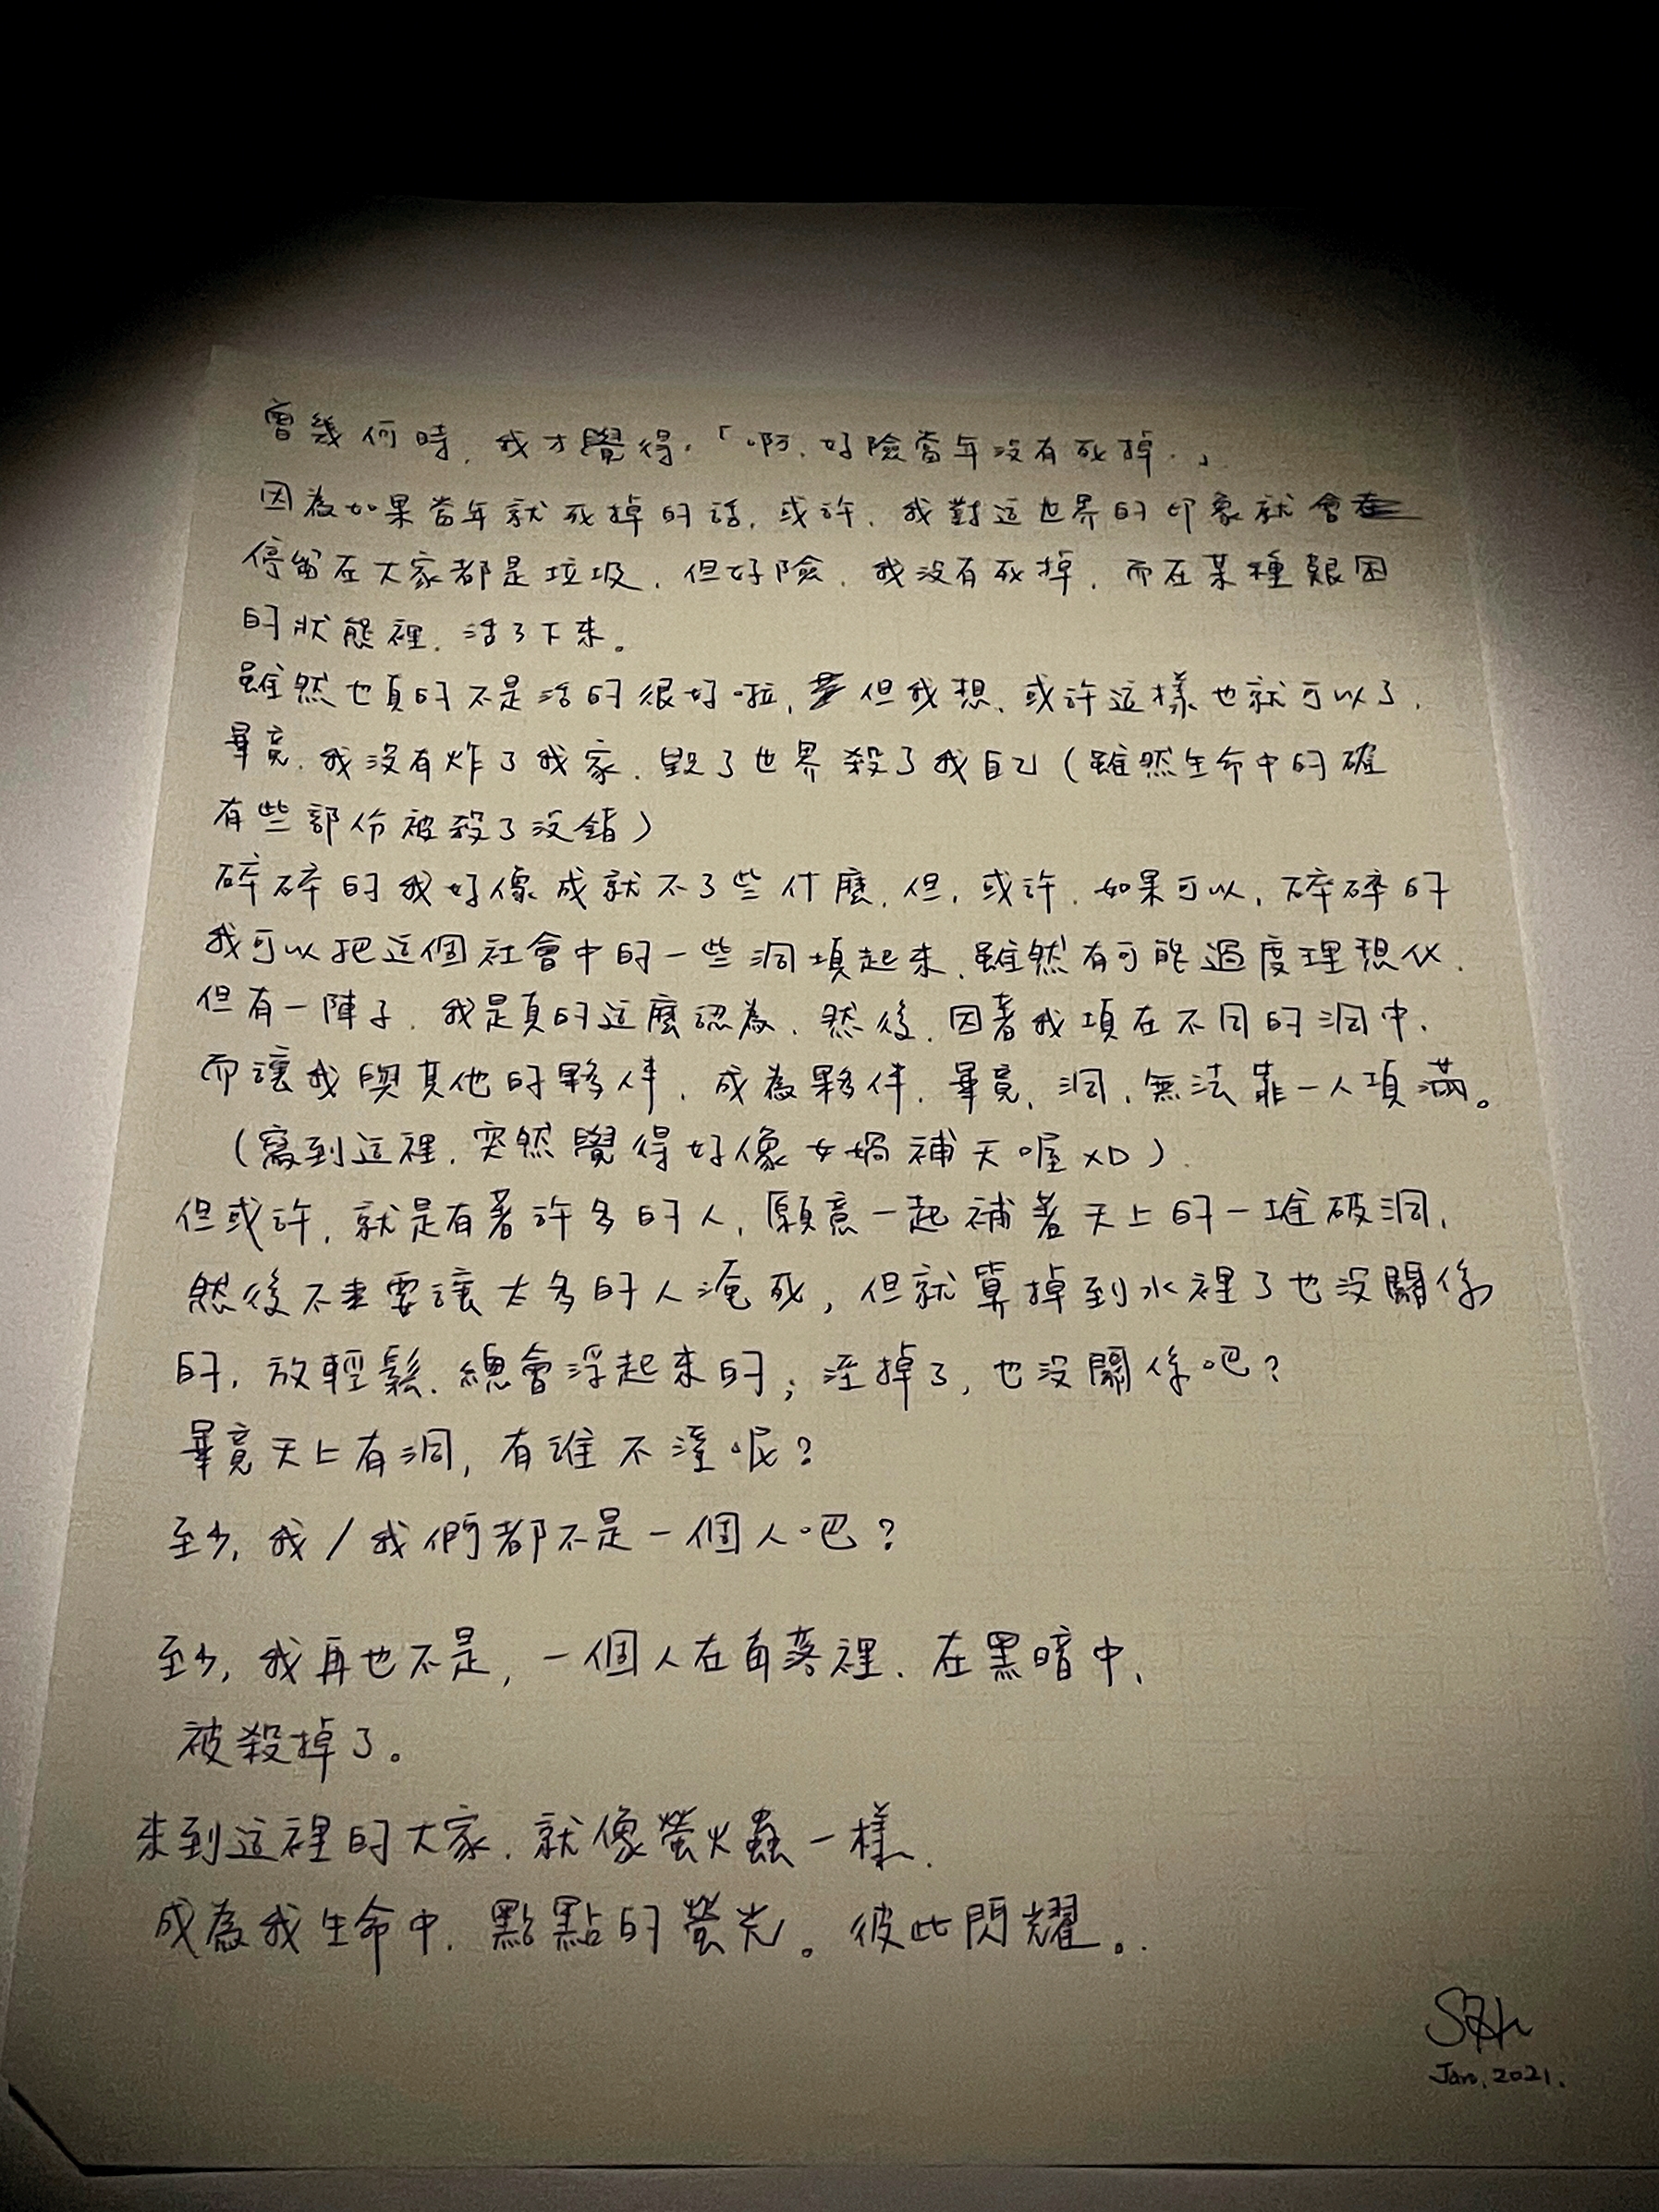 曾幾何時，我才覺得，「啊，好險當年沒有死掉。」
因為如果當年就死掉的話，或許，我對這世界的印象就會
停留在大家都是垃圾，但好險，我沒有死掉，而在某種艱困
的狀態裡，活了下來。
雖然也真的不是活的很好啦，但我想，或許這樣也就可以了，
畢竟，我沒有炸了我家，毀了世界殺了我自己（雖然生命中的確
有些部份被殺了沒錯）
碎碎的我好像成就不了些什麼，但，或許，如果可以，碎碎的
我可以把這個社會中的一些洞填起來，雖然有可能過度理想化，
但有一陣子，我是真的這麼認為，然後，因著我填在不同的洞中，
而讓我與其他的夥伴，成為夥伴，畢竟，洞，無法靠一人填滿。
（寫到這裡，突然覺得好像女媧補天喔XD）
但或許，就是有著許多的人，願意一起補著天上的一堆破洞，
然後不要讓太多的人淹死，但就算掉到水裡了也沒關係
的，放輕鬆，總會浮起來的；溼掉了，也沒關係吧？
畢竟天上有洞，有誰不溼呢？
至少，我／我們都不是一個人吧？
至少，我再也不是，一個人在角落裡，在黑暗中，
被殺掉了。
來到這裡的大家，就像螢火蟲一樣，
成為我生命中，點點的螢光。彼此閃耀。
Jan, 2021.